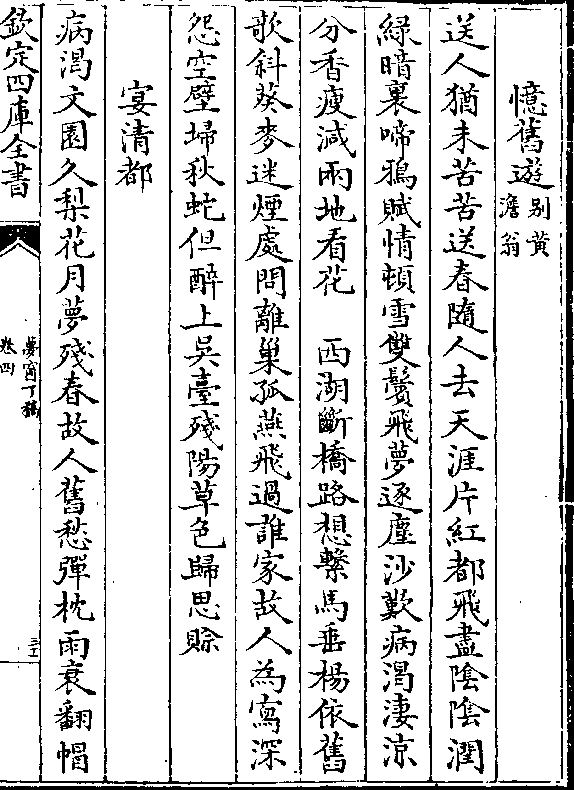 憶舊遊别黄澹翁
送人猶未苦苦送春隨人去天涯片紅都飛盡陰陰潤
綠暗裏啼鴉賦情頓雪雙鬢飛夢逐塵沙歎病渴淒涼
分香瘦減兩地看花　西湖斷橋路想繫馬垂楊依舊
欹斜葵麥迷煙處問離巢孤燕飛過誰家故人為寫深
怨空壁埽秋虵但醉上吳臺殘陽草色歸思賖
宴清都
病渴文園久梨花月夢殘春故人舊愁彈枕雨衰翻帽
欽定四庫全書
夢窗丁稿
卷四